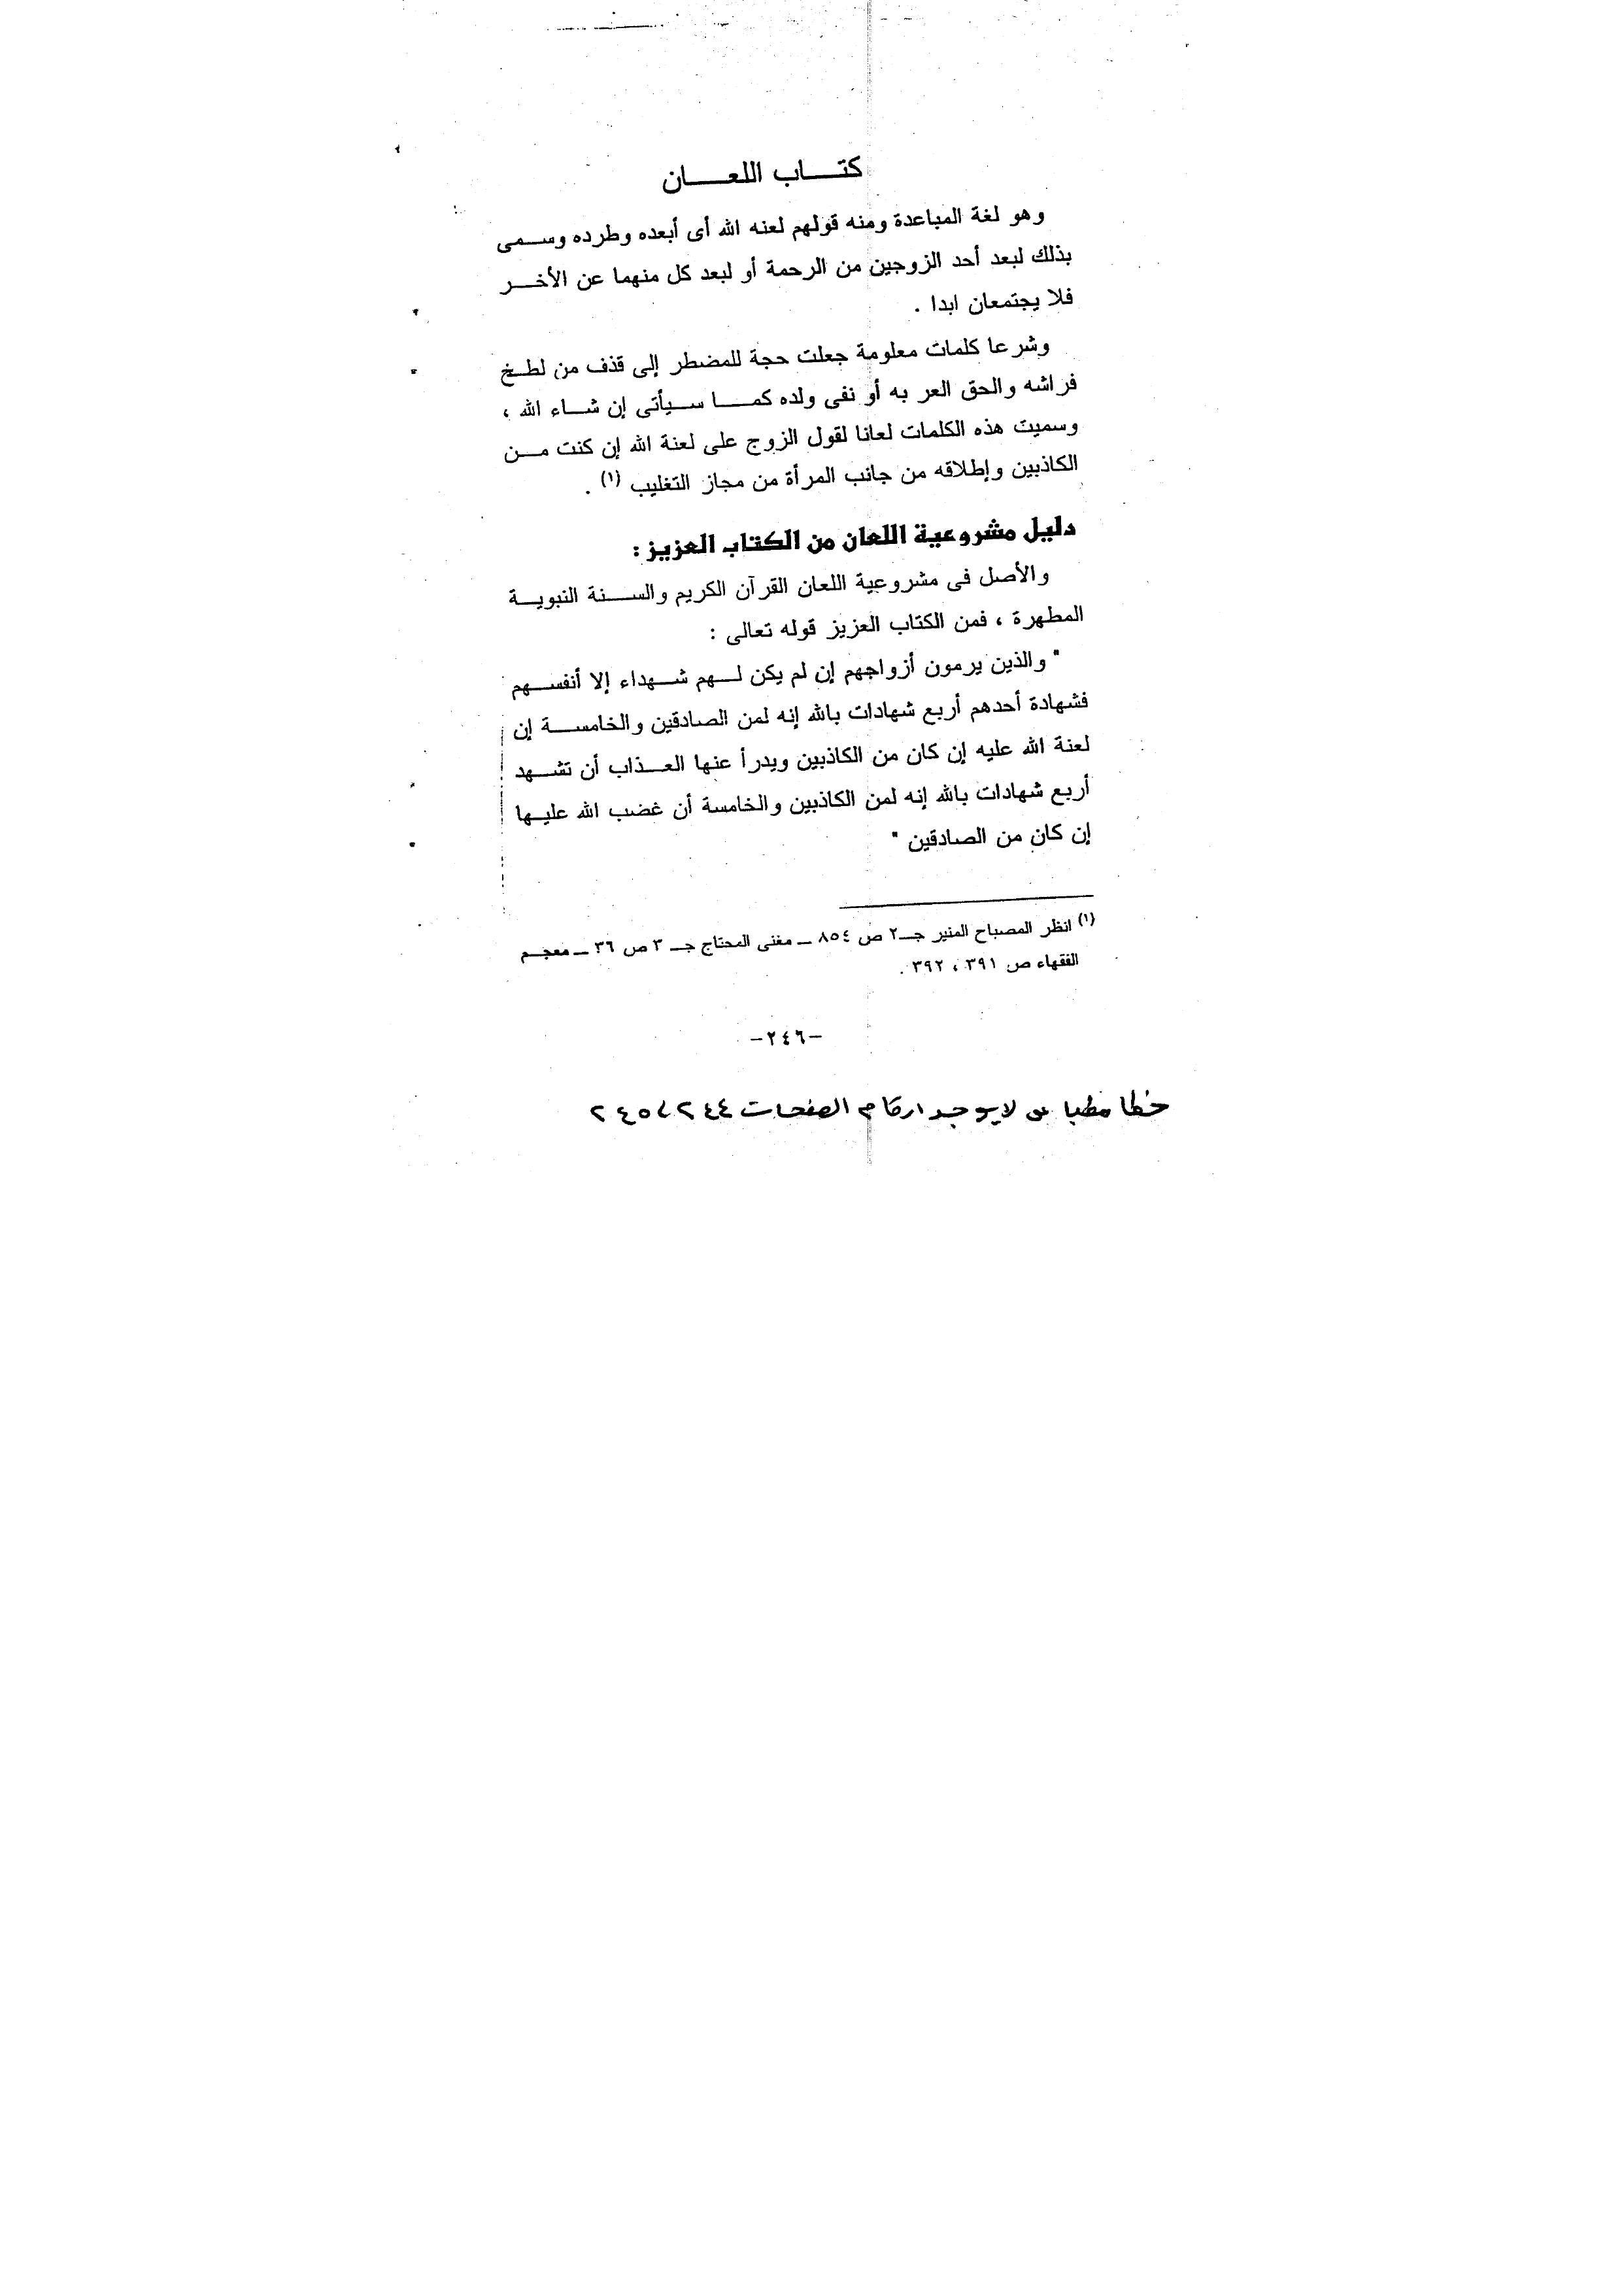 كتـــاب اللعـــان
وهو لغة المباعدة ومنه قولهم لعنه الله أى أبعده وطرده وسـمى
بذلك لبعد أحد الزوجين من الرحمة أو لبعد كل منهما عن الأخـر
فلا يجتمعان ابدا .
وشرعا كلمات معلومة جعلت حجة للمضطر إلى قذف من لطـخ
فراشه والحق العر به أو نفى ولده كمـا سـيأتى إن شـاء الله ،
وسميت هذه الكلمات لعانا لقول الزوج على لعنة الله إن كنت مـن
الكاذبين وإطلاقه من جانب المرأة من مجاز التغليب (١) .
دليل مشروعية اللعان من الكتاب العزيز :
والأصل فى مشروعية اللعان القرآن الكريم والسـنة النبويـة
المطهرة ، فمن الكتاب العزيز قوله تعالى :
" والذين يرمون أزواجهم إن لم يكن لـهم شـهداء إلا أنفسـهم
فشهادة أحدهم أربع شهادات بالله إنه لمن الصادقين والخامسـة إن
لعنة الله عليه إن كان من الكاذبين ويدرأ عنها العـذاب أن تشـهد
أربع شهادات بالله إنه لمن الكاذبين والخامسة أن غضب الله عليـها
إن كان من الصادقين "
(١) انظر المصباح المنير جـ٢ ص ٨٥٤ ــ مغنى المحتاج جـ ٣ ص ٣٦ ــ معجـم
الفقهاء ص ٣٩١ ، ٣٩٢ .
-٢٤٦-
خطا مطباعى لايوجد ارقام الصفحات ٢٤٤ ، ٢٤٥